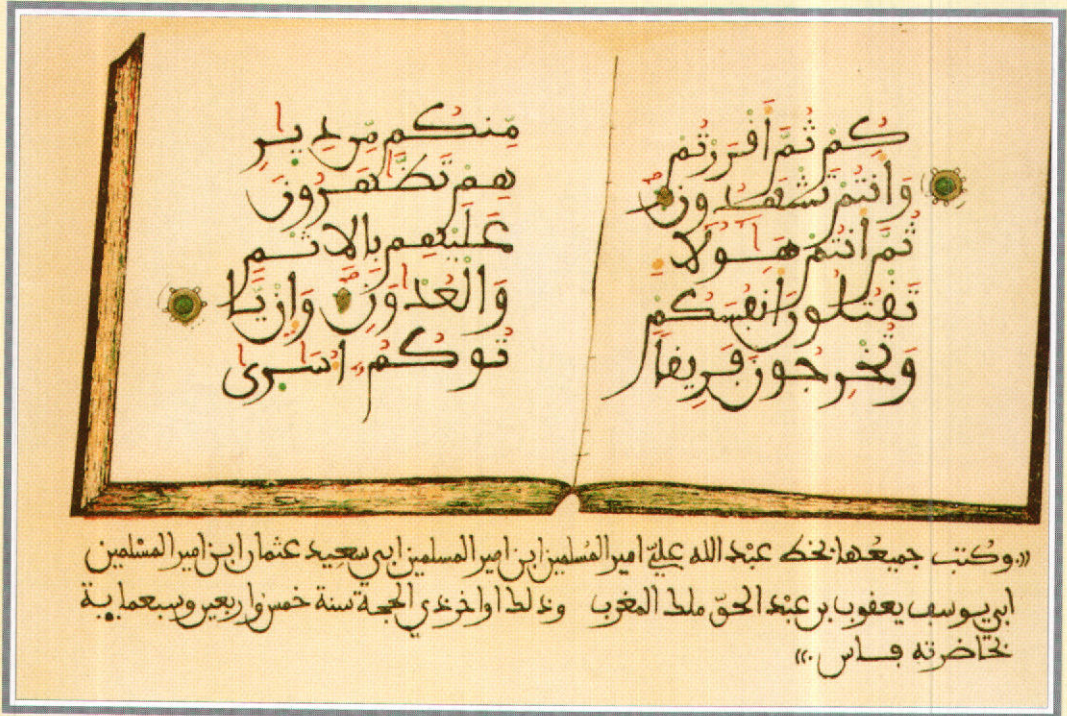 كُمْ ثُمَّ أَقْرَرْتُمْ
وَأَنتُمْ تَشْهَدُونَ
ثُمَّ أَنتُمْ هَٰؤُلَاءِ
تَقْتُلُونَ أَنفُسَكُمْ
وَتُخْرِجُونَ فَرِيقًا
مِّنكُم مِّن دِيَٰرِ
هِمْ تَظَّٰهَرُونَ
عَلَيْهِم بِالْإِثْمِ
وَالْعُدْوَٰنِ وَإِن يَّا
تُوكُمُ أُسَٰرَىٰ
«وكتب جميعها بخط عبد الله عليّ امير المسلمين ابن امير المسلمين ابي سعيد عثمان ابن امير المسلمين
ابي يوسف يعقوب بن عبد الحقّ ملك المغرب وذلك اواخر ذي الحجة سنة خمس واربعين وسبعماية
بحاضرته فاس.»